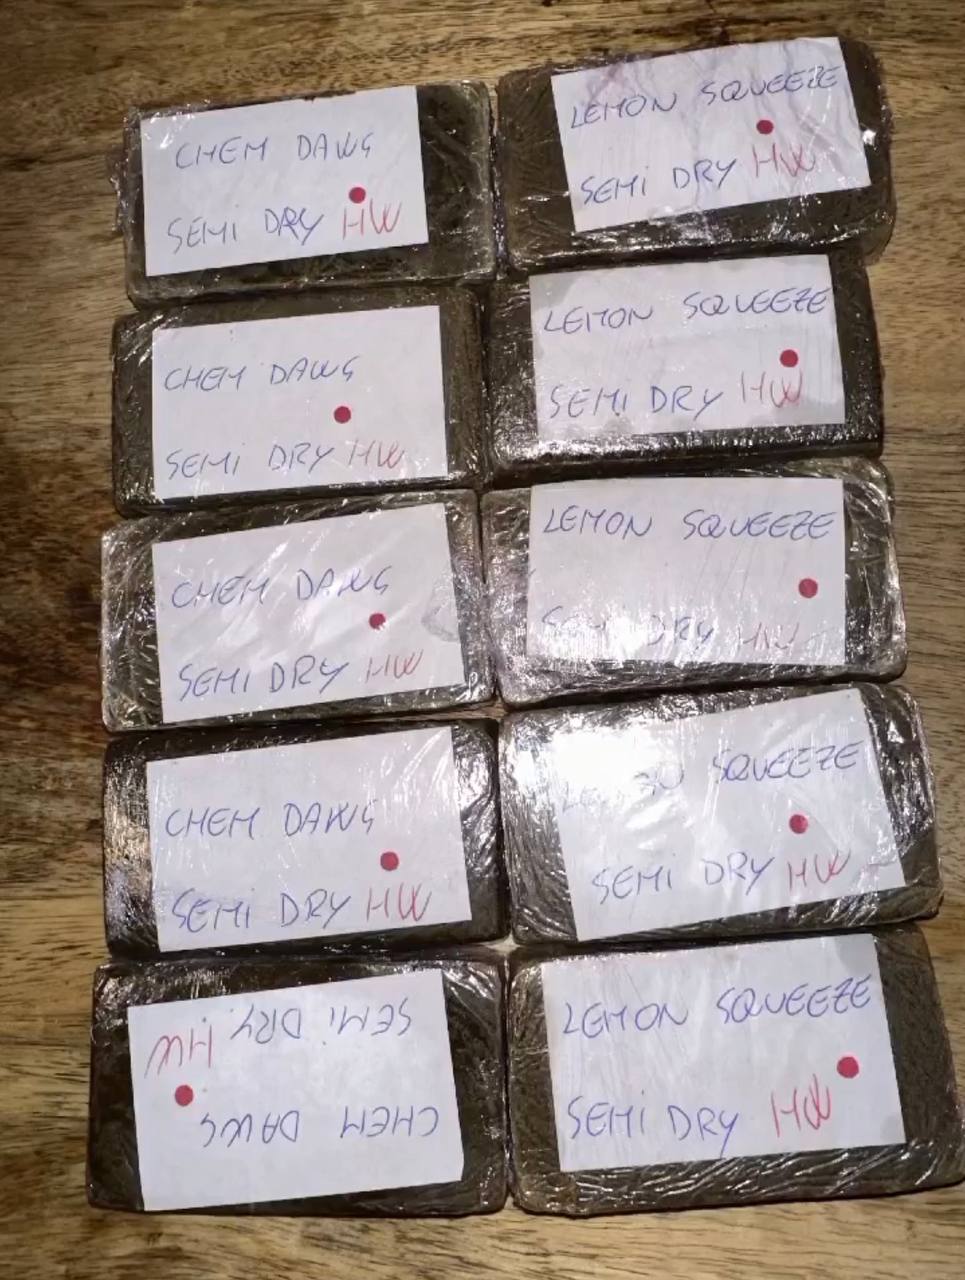 CHEM DAWG
SEMI DRY HW
LEMON SQUEEZE
SEMI DRY HW
CHEM DAWG
SEMI DRY HW
LEMON SQUEEZE
SEMI DRY HW
CHEM DAWG
SEMI DRY HW
LEMON SQUEEZE
SEMI DRY HW
CHEM DAWG
SEMI DRY HW
LEMON SQUEEZE
SEMI DRY HW
CHEM DAWG
SEMI DRY HW
LEMON SQUEEZE
SEMI DRY HW